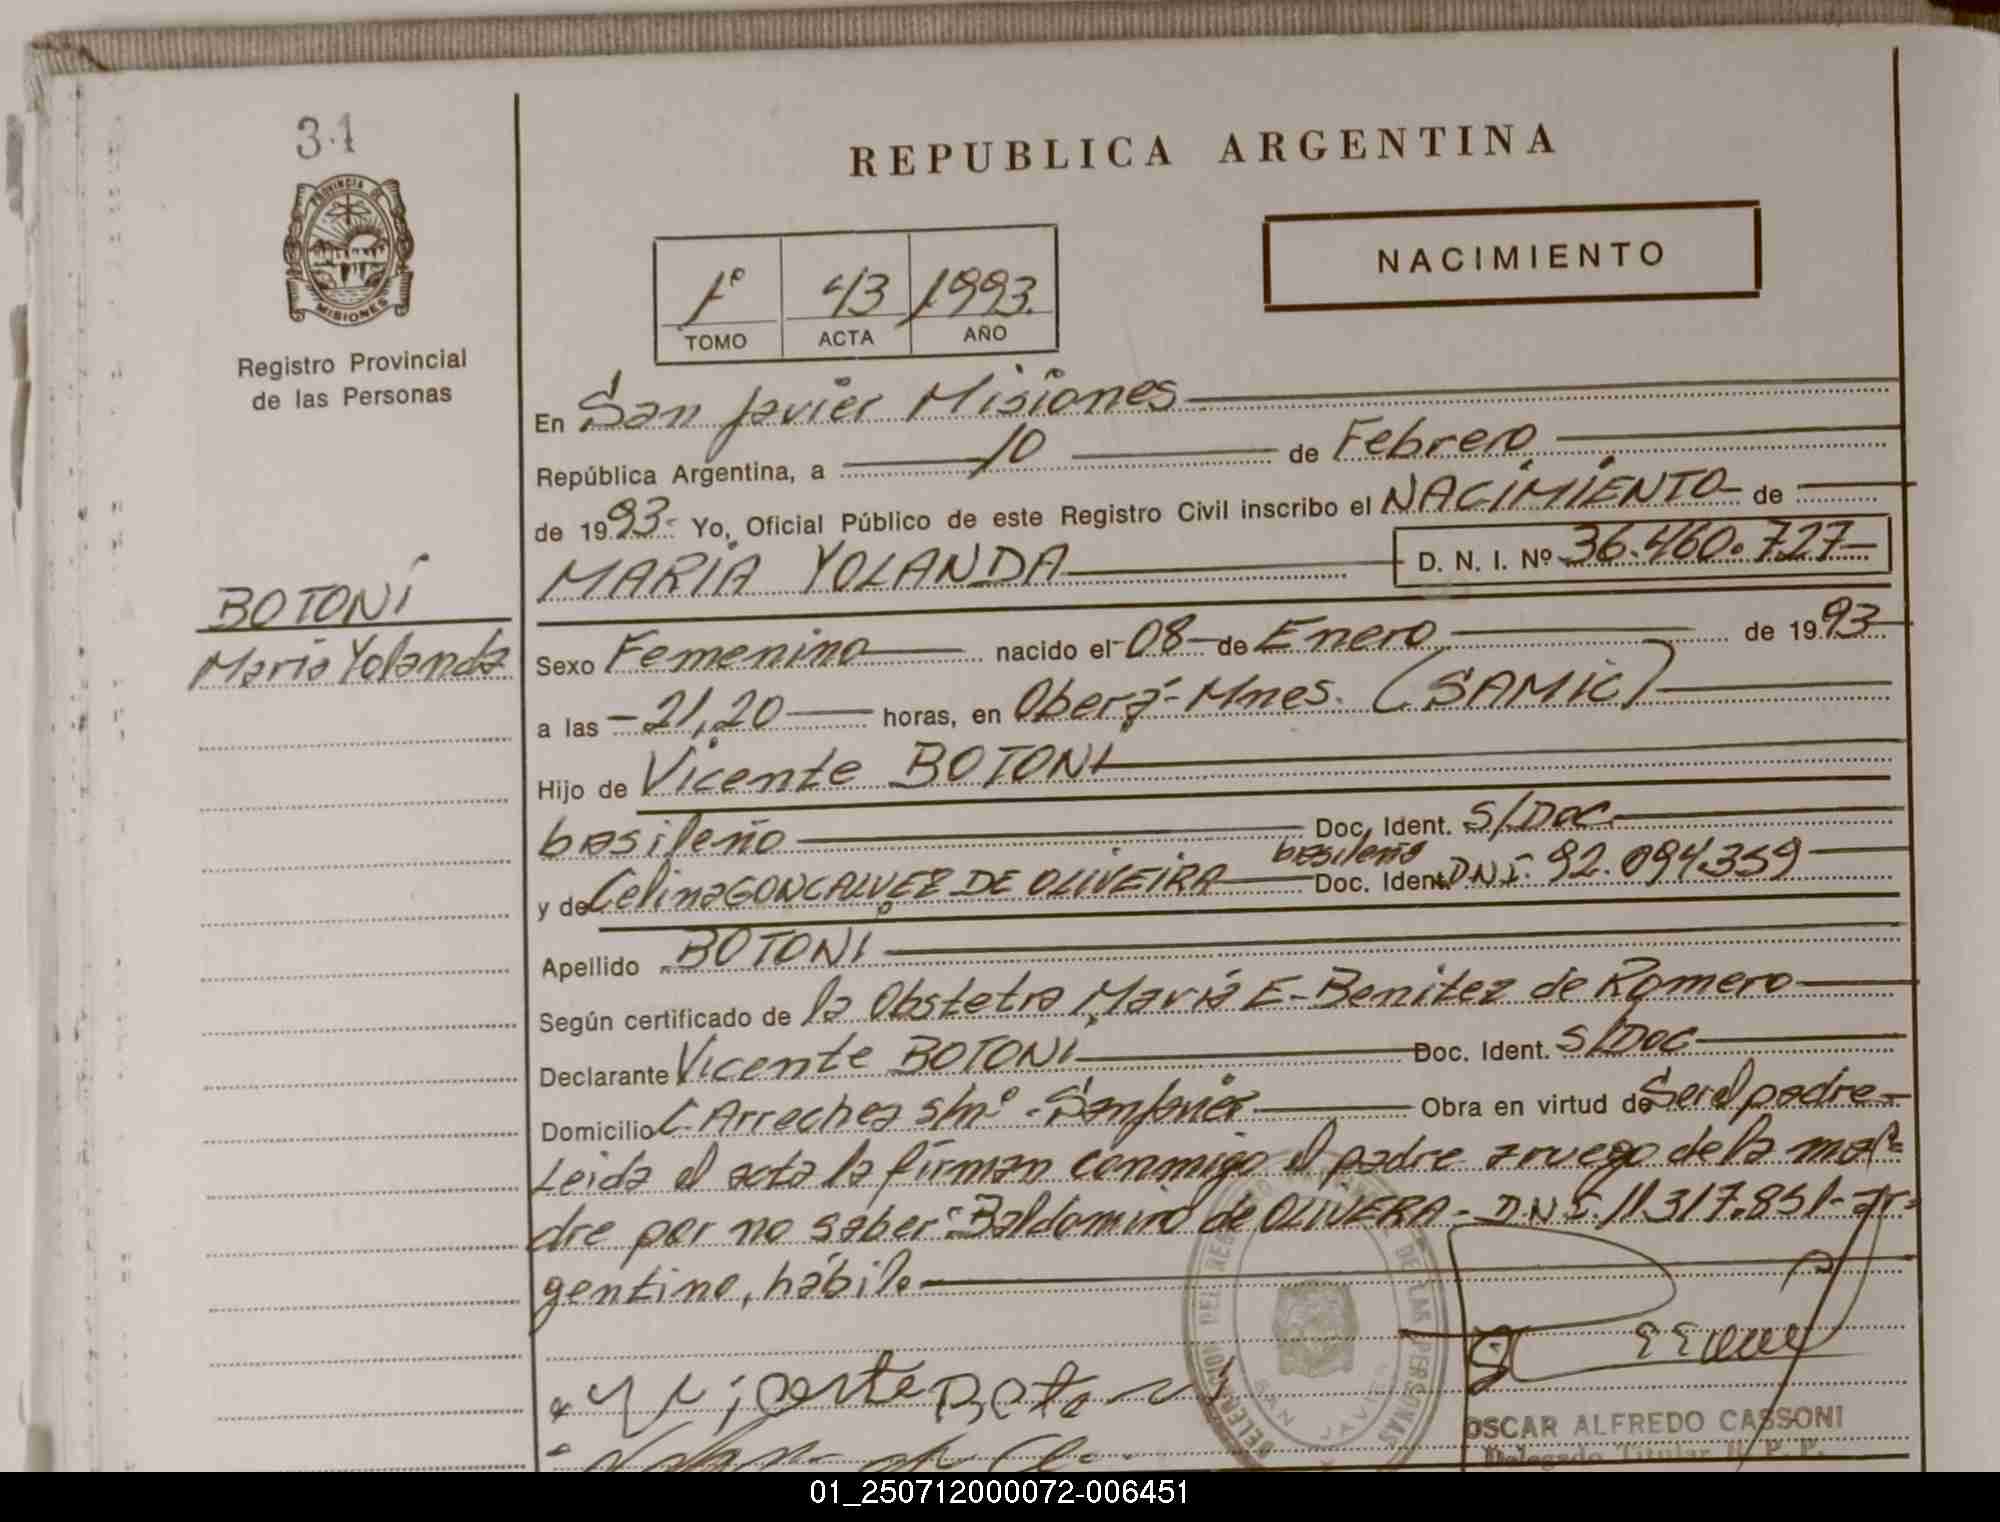 31
PROVINCIA DE
MISIONES
Registro Provincial
de las Personas
BOTONI
Maria Yolanda
REPUBLICA ARGENTINA
NACIMIENTO
1º 43 1993.
TOMO ACTA AÑO
En San Javier Misiones
República Argentina, a 10 de Febrero
de 1993. Yo, Oficial Público de este Registro Civil inscribo el NACIMIENTO de
MARIA YOLANDA D. N. I. Nº 36.460.727
Sexo Femenino nacido el 08 de Enero de 1993
a las 21,20 horas, en Oberá-Mnes. (SAMIC)
Hijo de Vicente BOTONI
brasileño Doc. Ident. S/Doc.
y de Celina GONCALVEZ DE OLIVEIRA brasileña Doc. Ident. D.N.I. 92.094.359
Apellido BOTONI
Según certificado de la Obstetra María E. Benitez de Romero
Declarante Vicente BOTONI Doc. Ident. S/Doc
Domicilio C. Arrechea s/nº - San Javier Obra en virtud de Ser el padre
Leida el acta la firman conmigo el padre a ruego de la ma=
dre por no saber: Baldomiro de OLIVERA - D.N.I. 11.317.851 - ar=
gentino, hábil.
DELEGACION DEL REGISTRO DE LAS PERSONAS
SAN JAVIER
OSCAR ALFREDO CASSONI
Delegado Titular R. P. P.
01_250712000072-006451